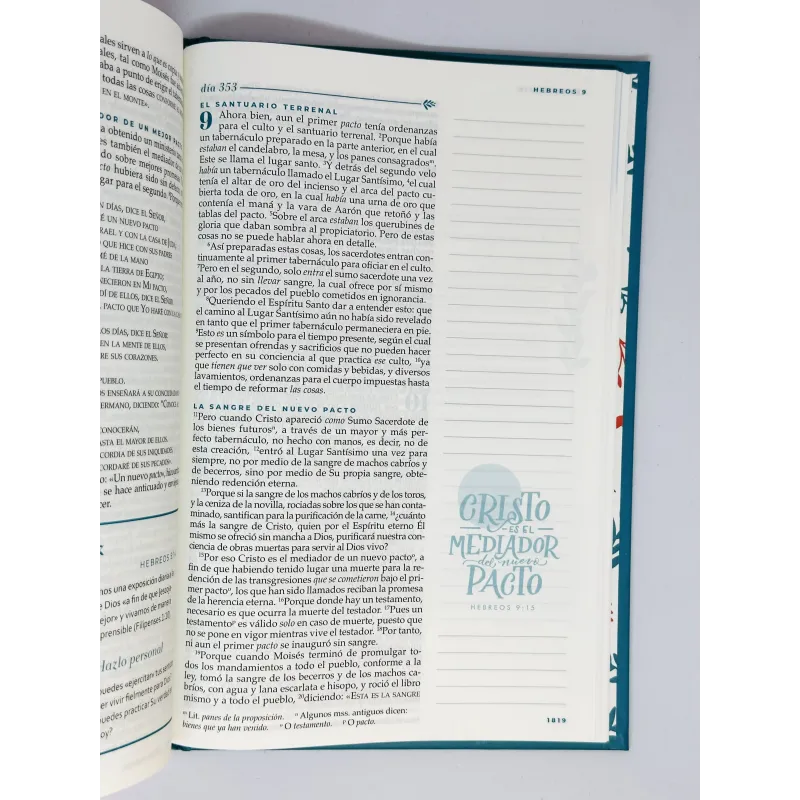 ales sirven a lo que es copia
ales, tal como Moisés fue
aba a punto de erigir el
todas las cosas conforme
EN EL MONTE».
DOR DE UN MEJOR PACTO
a obtenido un ministerio
es también el mediador de
do sobre mejores promesas.
cto hubiera sido sin
gar para el segundo.
N DÍAS, DICE EL SEÑOR
É UN NUEVO PACTO
RAEL Y CON LA CASA DE JUDÁ;
O QUE HICE CON SUS PADRES
É DE LA MANO
LA TIERRA DE EGIPTO;
NECIERON EN MI PACTO,
DÍ DE ELLOS, DICE EL SEÑOR.
PACTO QUE YO HARÉ CON LA
LOS DÍAS, DICE EL SEÑOR
EN LA MENTE DE ELLOS,
RE SUS CORAZONES.
PUEBLO.
ENSEÑARÁ A SU CONCIUDADANO
ERMANO, DICIENDO:
CONOCERÁN,
ASTA EL MAYOR DE ELLOS.
CORDIA DE SUS INIQUIDADES,
CORDARÉ DE SUS PECADOS».
o: «Un nuevo pacto»,
se hace anticuado y
cer.
HEBREOS
nos una exposición
e Dios «a fin de que
ejor» y vivamos de manera
prensible (Filipenses
Hazlo personal
puedes «ejercitar» tus
er vivir fielmente para Dios
puedes practicar Su verdad
y?
día 353
HEBREOS 9
EL SANTUARIO TERRENAL
9 Ahora bien, aun el primer pacto tenía ordenanzas
para el culto y el santuario terrenal. ²Porque había
un tabernáculo preparado en la parte anterior, en el cual
estaban el candelabro, la mesa, y los panes consagradosᵐ.
Este se llama el lugar santo. ³Y detrás del segundo velo
había un tabernáculo llamado el Lugar Santísimo, ⁴el cual
tenía el altar de oro del incienso y el arca del pacto cu-
bierta toda de oro, en la cual había una urna de oro que
contenía el maná y la vara de Aarón que retoñó y las
tablas del pacto. ⁵Sobre el arca estaban los querubines de
gloria que daban sombra al propiciatorio. Pero de estas
cosas no se puede hablar ahora en detalle.
⁶Así preparadas estas cosas, los sacerdotes entran con-
tinuamente al primer tabernáculo para oficiar en el culto.
⁷Pero en el segundo, solo entra el sumo sacerdote una vez
al año, no sin llevar sangre, la cual ofrece por sí mismo
y por los pecados del pueblo cometidos en ignorancia.
⁸Queriendo el Espíritu Santo dar a entender esto: que
el camino al Lugar Santísimo aún no había sido revelado
en tanto que el primer tabernáculo permaneciera en pie.
⁹Esto es un símbolo para el tiempo presente, según el cual
se presentan ofrendas y sacrificios que no pueden hacer
perfecto en su conciencia al que practica ese culto, ¹⁰ya
que tienen que ver solo con comidas y bebidas, y diversos
lavamientos, ordenanzas para el cuerpo impuestas hasta
el tiempo de reformar las cosas.
LA SANGRE DEL NUEVO PACTO
¹¹Pero cuando Cristo apareció como Sumo Sacerdote de
los bienes futurosⁿ, a través de un mayor y más per-
fecto tabernáculo, no hecho con manos, es decir, no de
esta creación, ¹²entró al Lugar Santísimo una vez para
siempre, no por medio de la sangre de machos cabríos y
de becerros, sino por medio de Su propia sangre, obte-
niendo redención eterna.
¹³Porque si la sangre de los machos cabríos y de los toros,
y la ceniza de la novilla, rociadas sobre los que se han conta-
minado, santifican para la purificación de la carne, ¹⁴¿cuánto
más la sangre de Cristo, quien por el Espíritu eterno Él
mismo se ofreció sin mancha a Dios, purificará nuestra con-
ciencia de obras muertas para servir al Dios vivo?
¹⁵Por eso Cristo es el mediador de un nuevo pactoᵒ, a
fin de que habiendo tenido lugar una muerte para la re-
dención de las transgresiones que se cometieron bajo el pri-
mer pactoᵒ, los que han sido llamados reciban la promesa
de la herencia eterna. ¹⁶Porque donde hay un testamento,
necesario es que ocurra la muerte del testador. ¹⁷Pues un
testamentoᵖ es válido solo en caso de muerte, puesto que
no se pone en vigor mientras vive el testador. ¹⁸Por tanto,
ni aun el primer pactoᵒ se inauguró sin sangre.
¹⁹Porque cuando Moisés terminó de promulgar to-
dos los mandamientos a todo el pueblo, conforme a la
ley, tomó la sangre de los becerros y de los machos ca-
bríos, con agua y lana escarlata e hisopo, y roció el libro
mismo y a todo el pueblo, ²⁰diciendo: «ESTA ES LA SANGRE
ᵐ Lit. panes de la proposición. ⁿ Algunos mss. antiguos dicen:
bienes que ya han venido. ᵒ O testamento. ᵖ O pacto.
CRISTO
ES EL
MEDIADOR
del nuevo
PACTO
HEBREOS 9:15
1819